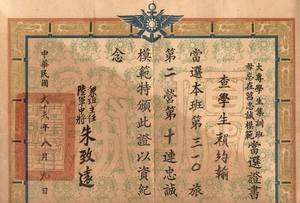 大專學生集訓班
毋忘在莒忠誠模範當選證書
查學生賴約翰
當選本班第三一〇旅
第二營第十連忠誠
模範特頒此證以資紀
念
班主任
陸軍中將朱致遠
中華民國五十六年八月 日